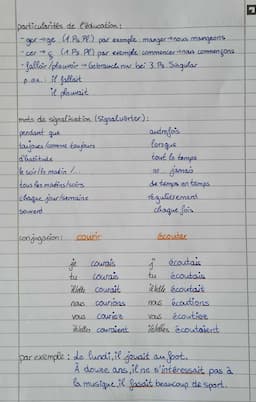 particularités de l'éducation :
- ger → ge (1. Ps. Pl) par exemple: manger → nous mangeons
- cer → ç (1. Ps. Pl) par exemple commencer → nous commençons
- falloir/pleuvoir → Gebrauch nur bei 3. Ps. Singular
p. ex.: il fallait
il pleuvait
mots de signalisation (Signalwörter):
pendant que autrefois
toujours/comme toujours lorsque
d'habitude tout le temps
le soir/le matin/... ne ... jamais
tous les matins/soirs de temps en temps
chaque jour/semaine régulièrement
souvent chaque fois
conjugaison: courir écouter
je courais j' écoutais
tu courais tu écoutais
il/elle courait il/elle écoutait
nous courions nous écoutions
vous couriez vous écoutiez
ils/elles couraient ils/elles écoutaient
par exemple: Le lundi, il jouait au foot.
À douze ans, il ne s'intéressait pas à
la musique, il faisait beaucoup de sport.